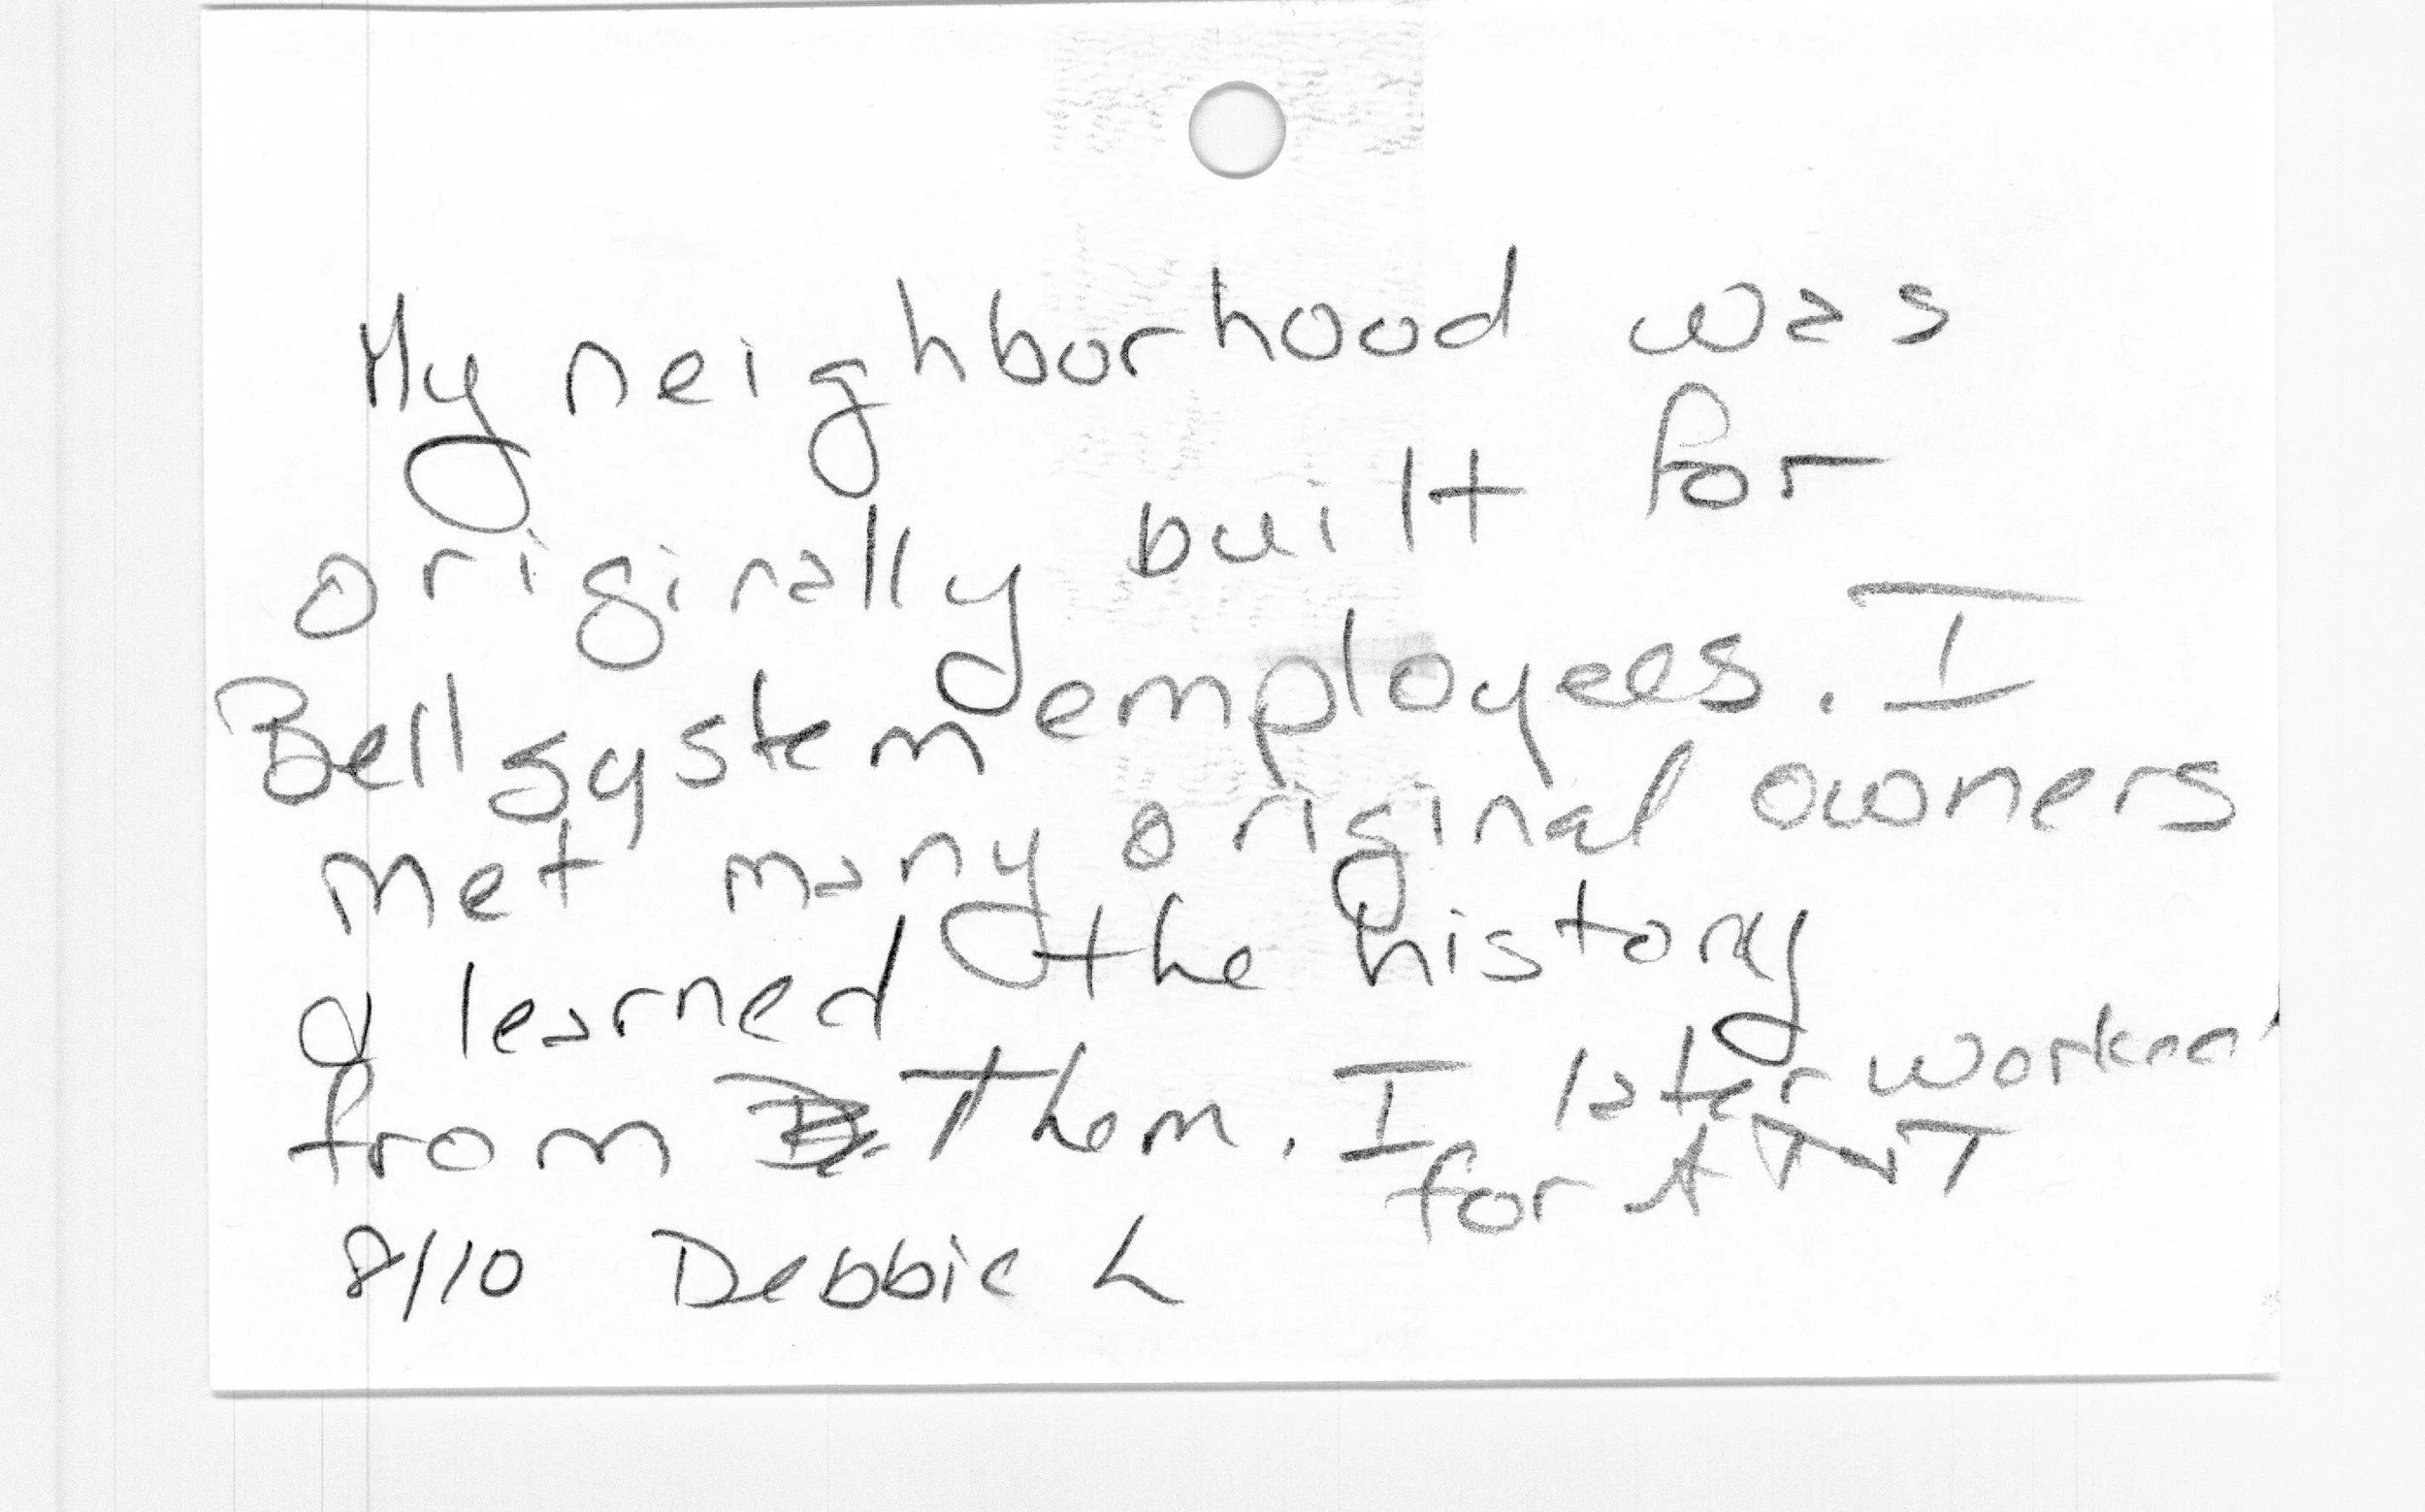 My neighborhood was
originally built for
Bell system employees. I
met many original owners
& learned the history
from them. I later worked
for ATNT
8/10 Debbie L